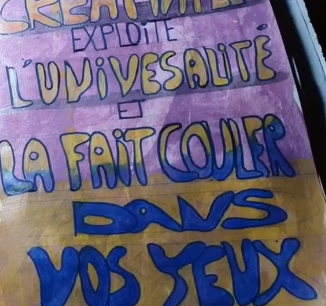 EXPLOITE
L'UNIVESALITÉ
ET
LA FAIT COULER
DANS
VOS YEUX